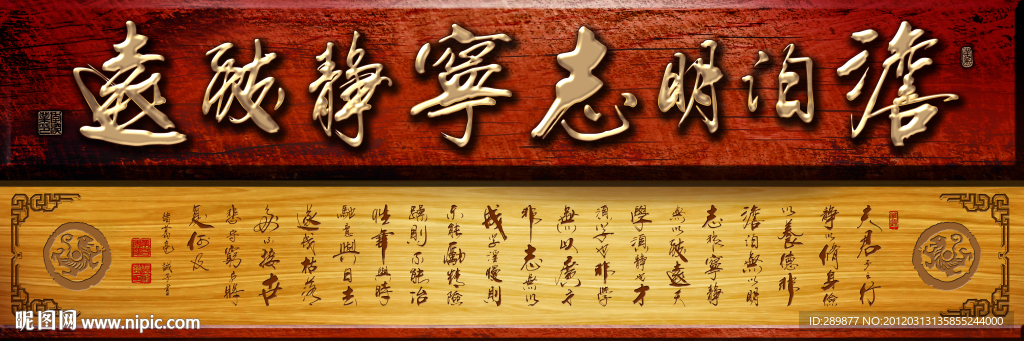 澹泊明志寧靜致遠
夫君子之行
靜以脩身儉
以養德非
澹泊無以明
志非寧靜
無以致遠夫
學須靜也才
須學也非學
無以廣才
非志無以
成學淫慢則
不能勵精險
躁則不能冶
性年與時
馳意與日去
遂成枯落
多不接世
悲守窮廬將
復何及
諸葛亮誡子書
昵图网 www.nipic.com
ID:289877 NO:20120313135855244000